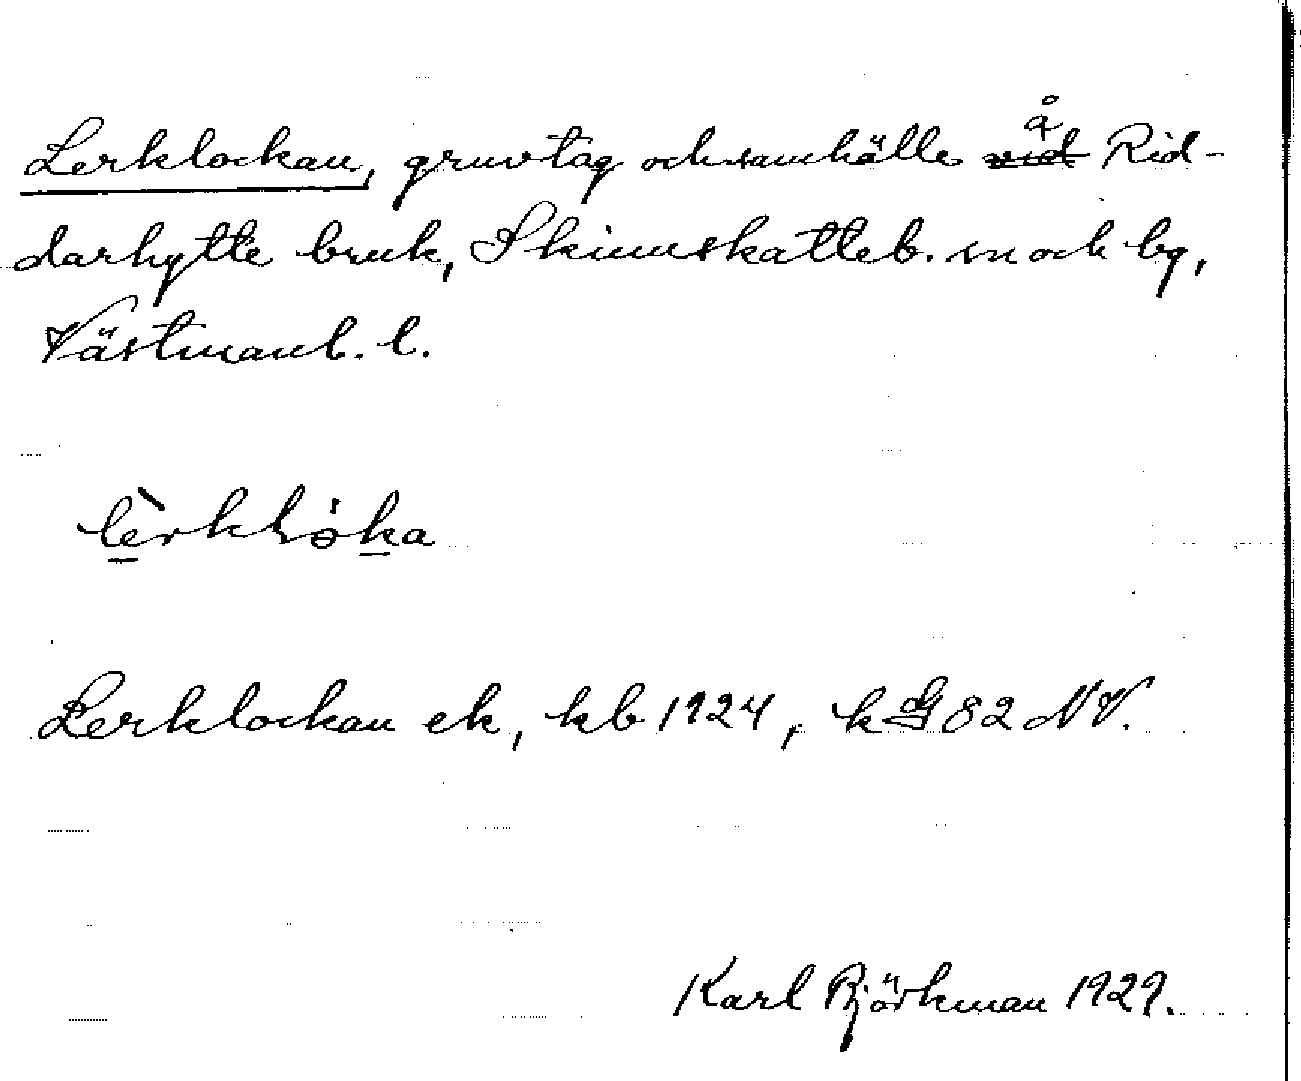 Lerklockan, gruvtag och samhälle å Rid-
darhytte bruk, Skinnskatteb. sn och bg,
Västmanl. l.
lèrklåka
Lerklockan ek, kb 1924, k G 82 NV.
Karl Björkman 1929.